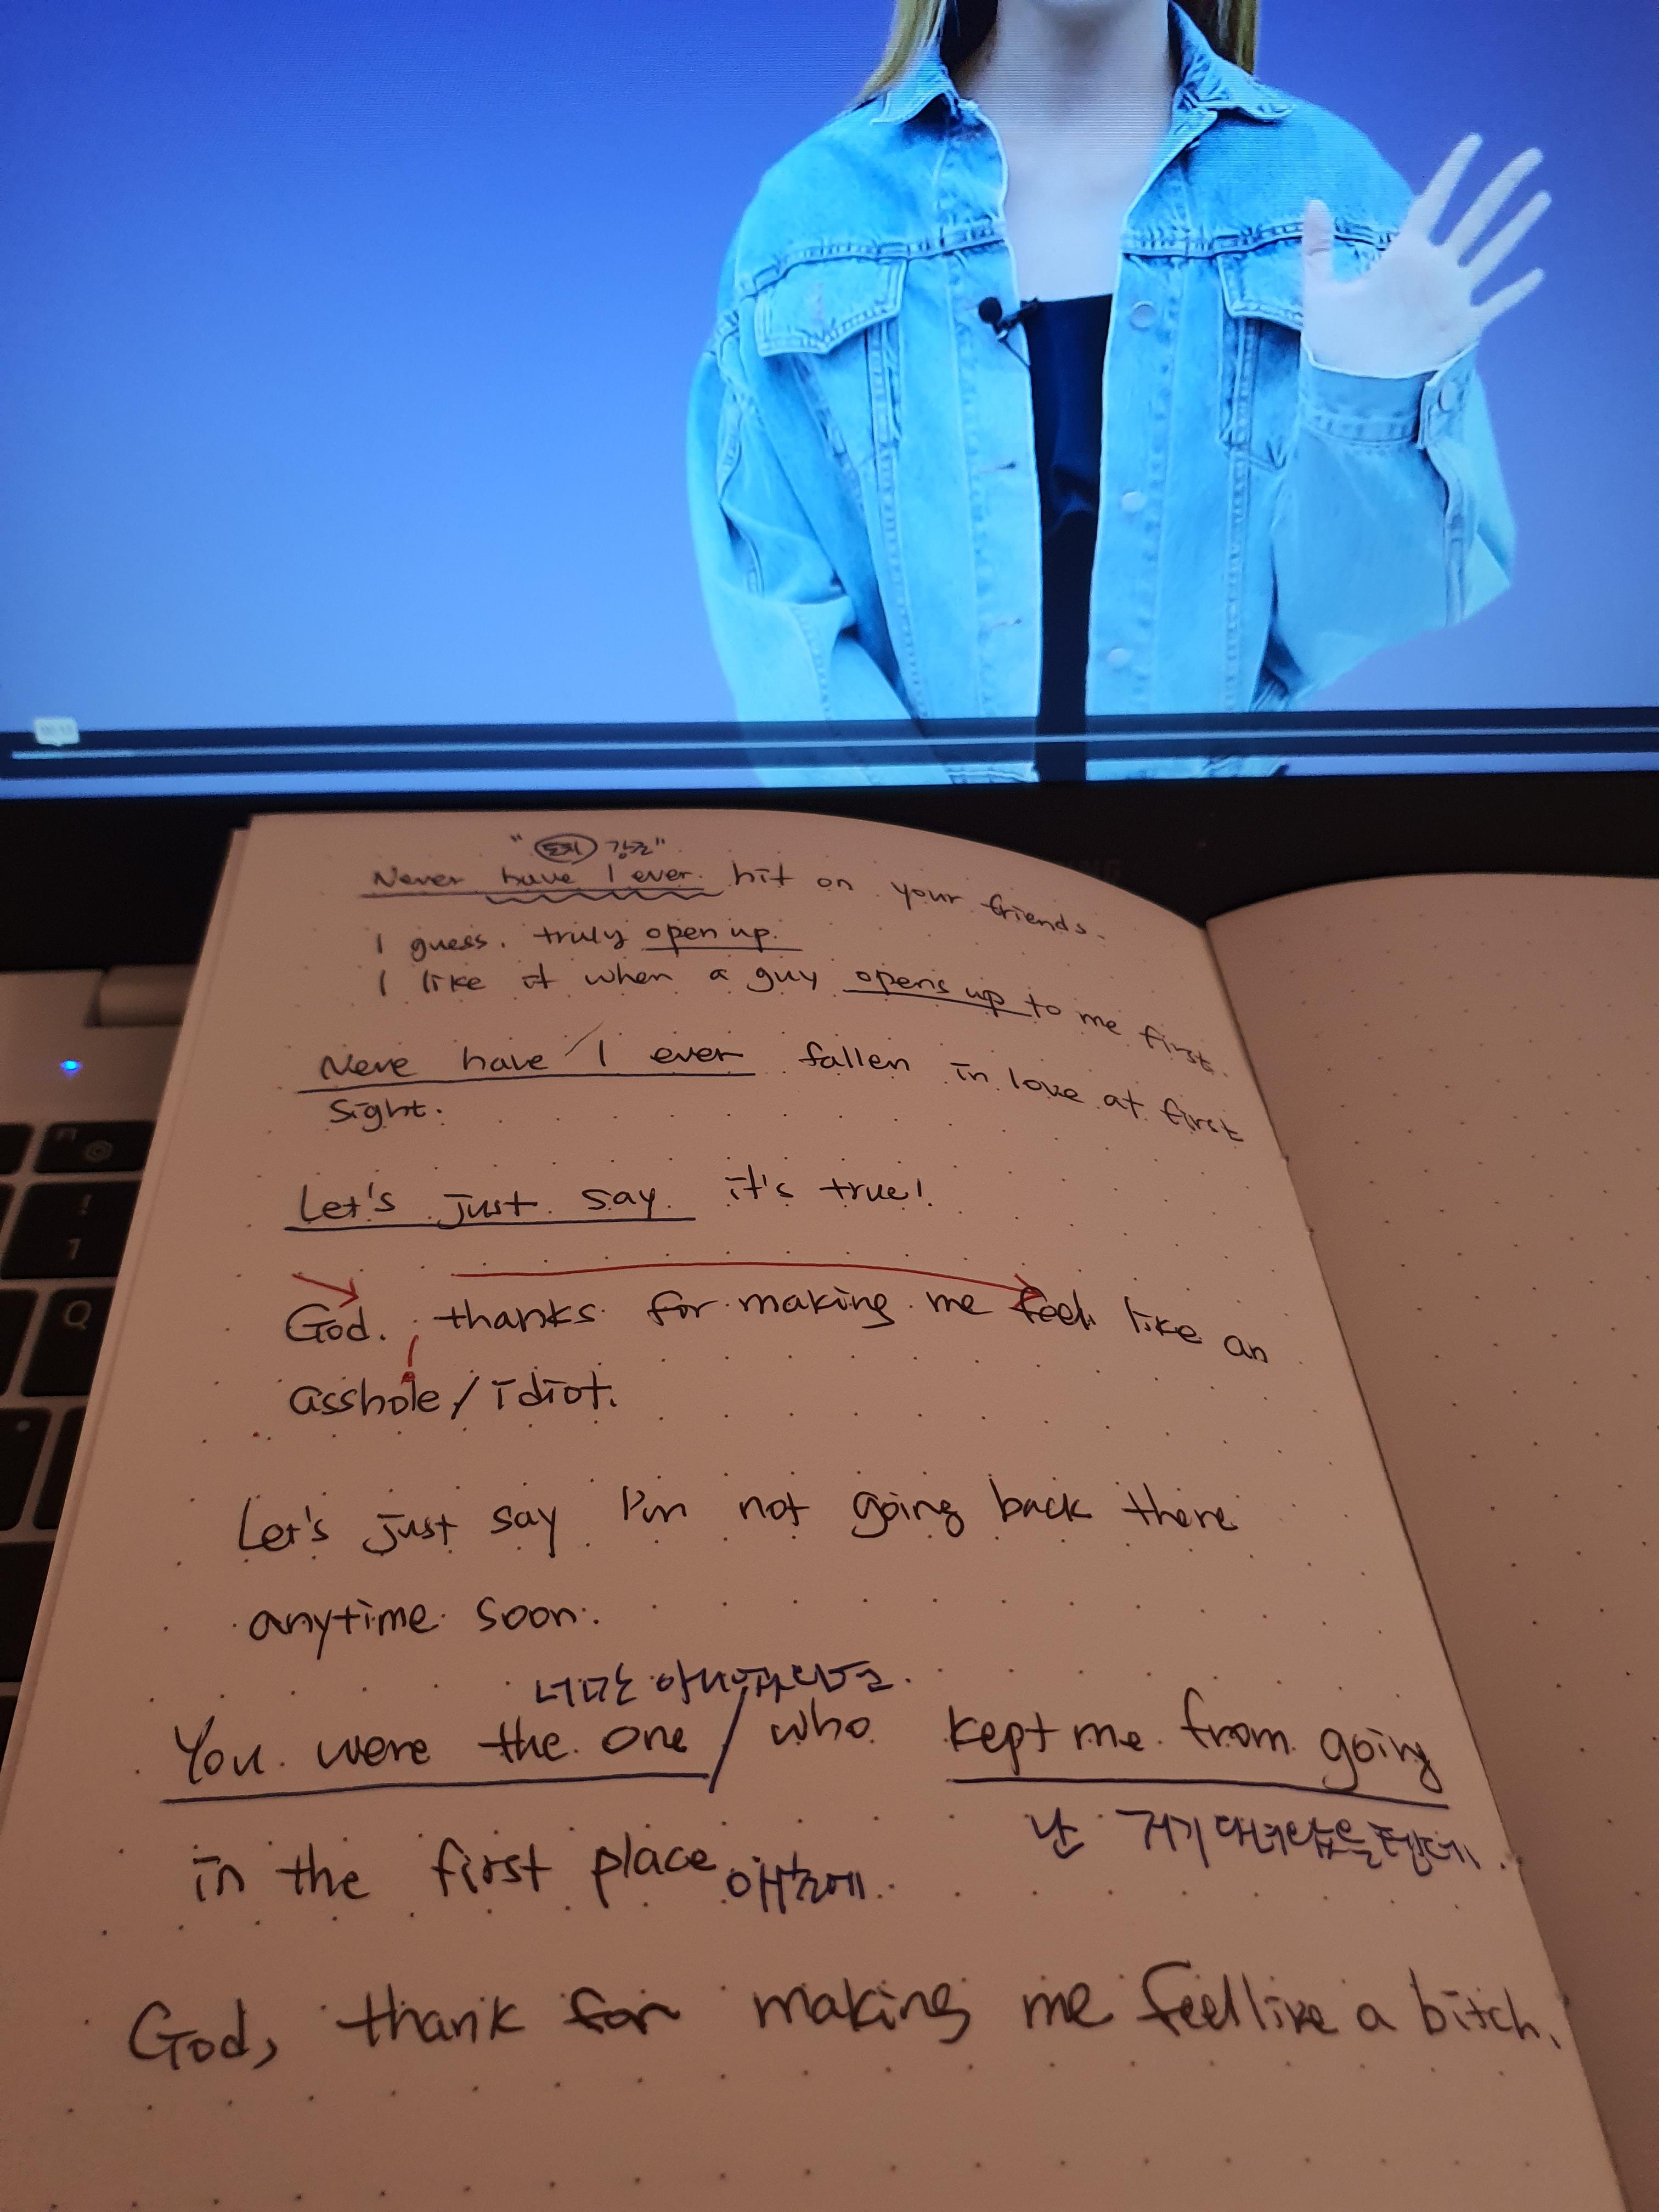 "도치 강조"
Never have I ever hit on your friends.
I guess. truly open up.
I like it when a guy opens up to me first.
Neve have I ever fallen in love at first
Sight.
Let's just say it's true!
God. thanks for making me feel like an
asshole/idiot.
Let's just say I'm not going back there
anytime soon.
너만 아니었더라도.
You were the one / who kept me from going
난 거기 다녀왔을텐데.
in the first place 애초에.
God, thank for making me feel like a bitch.